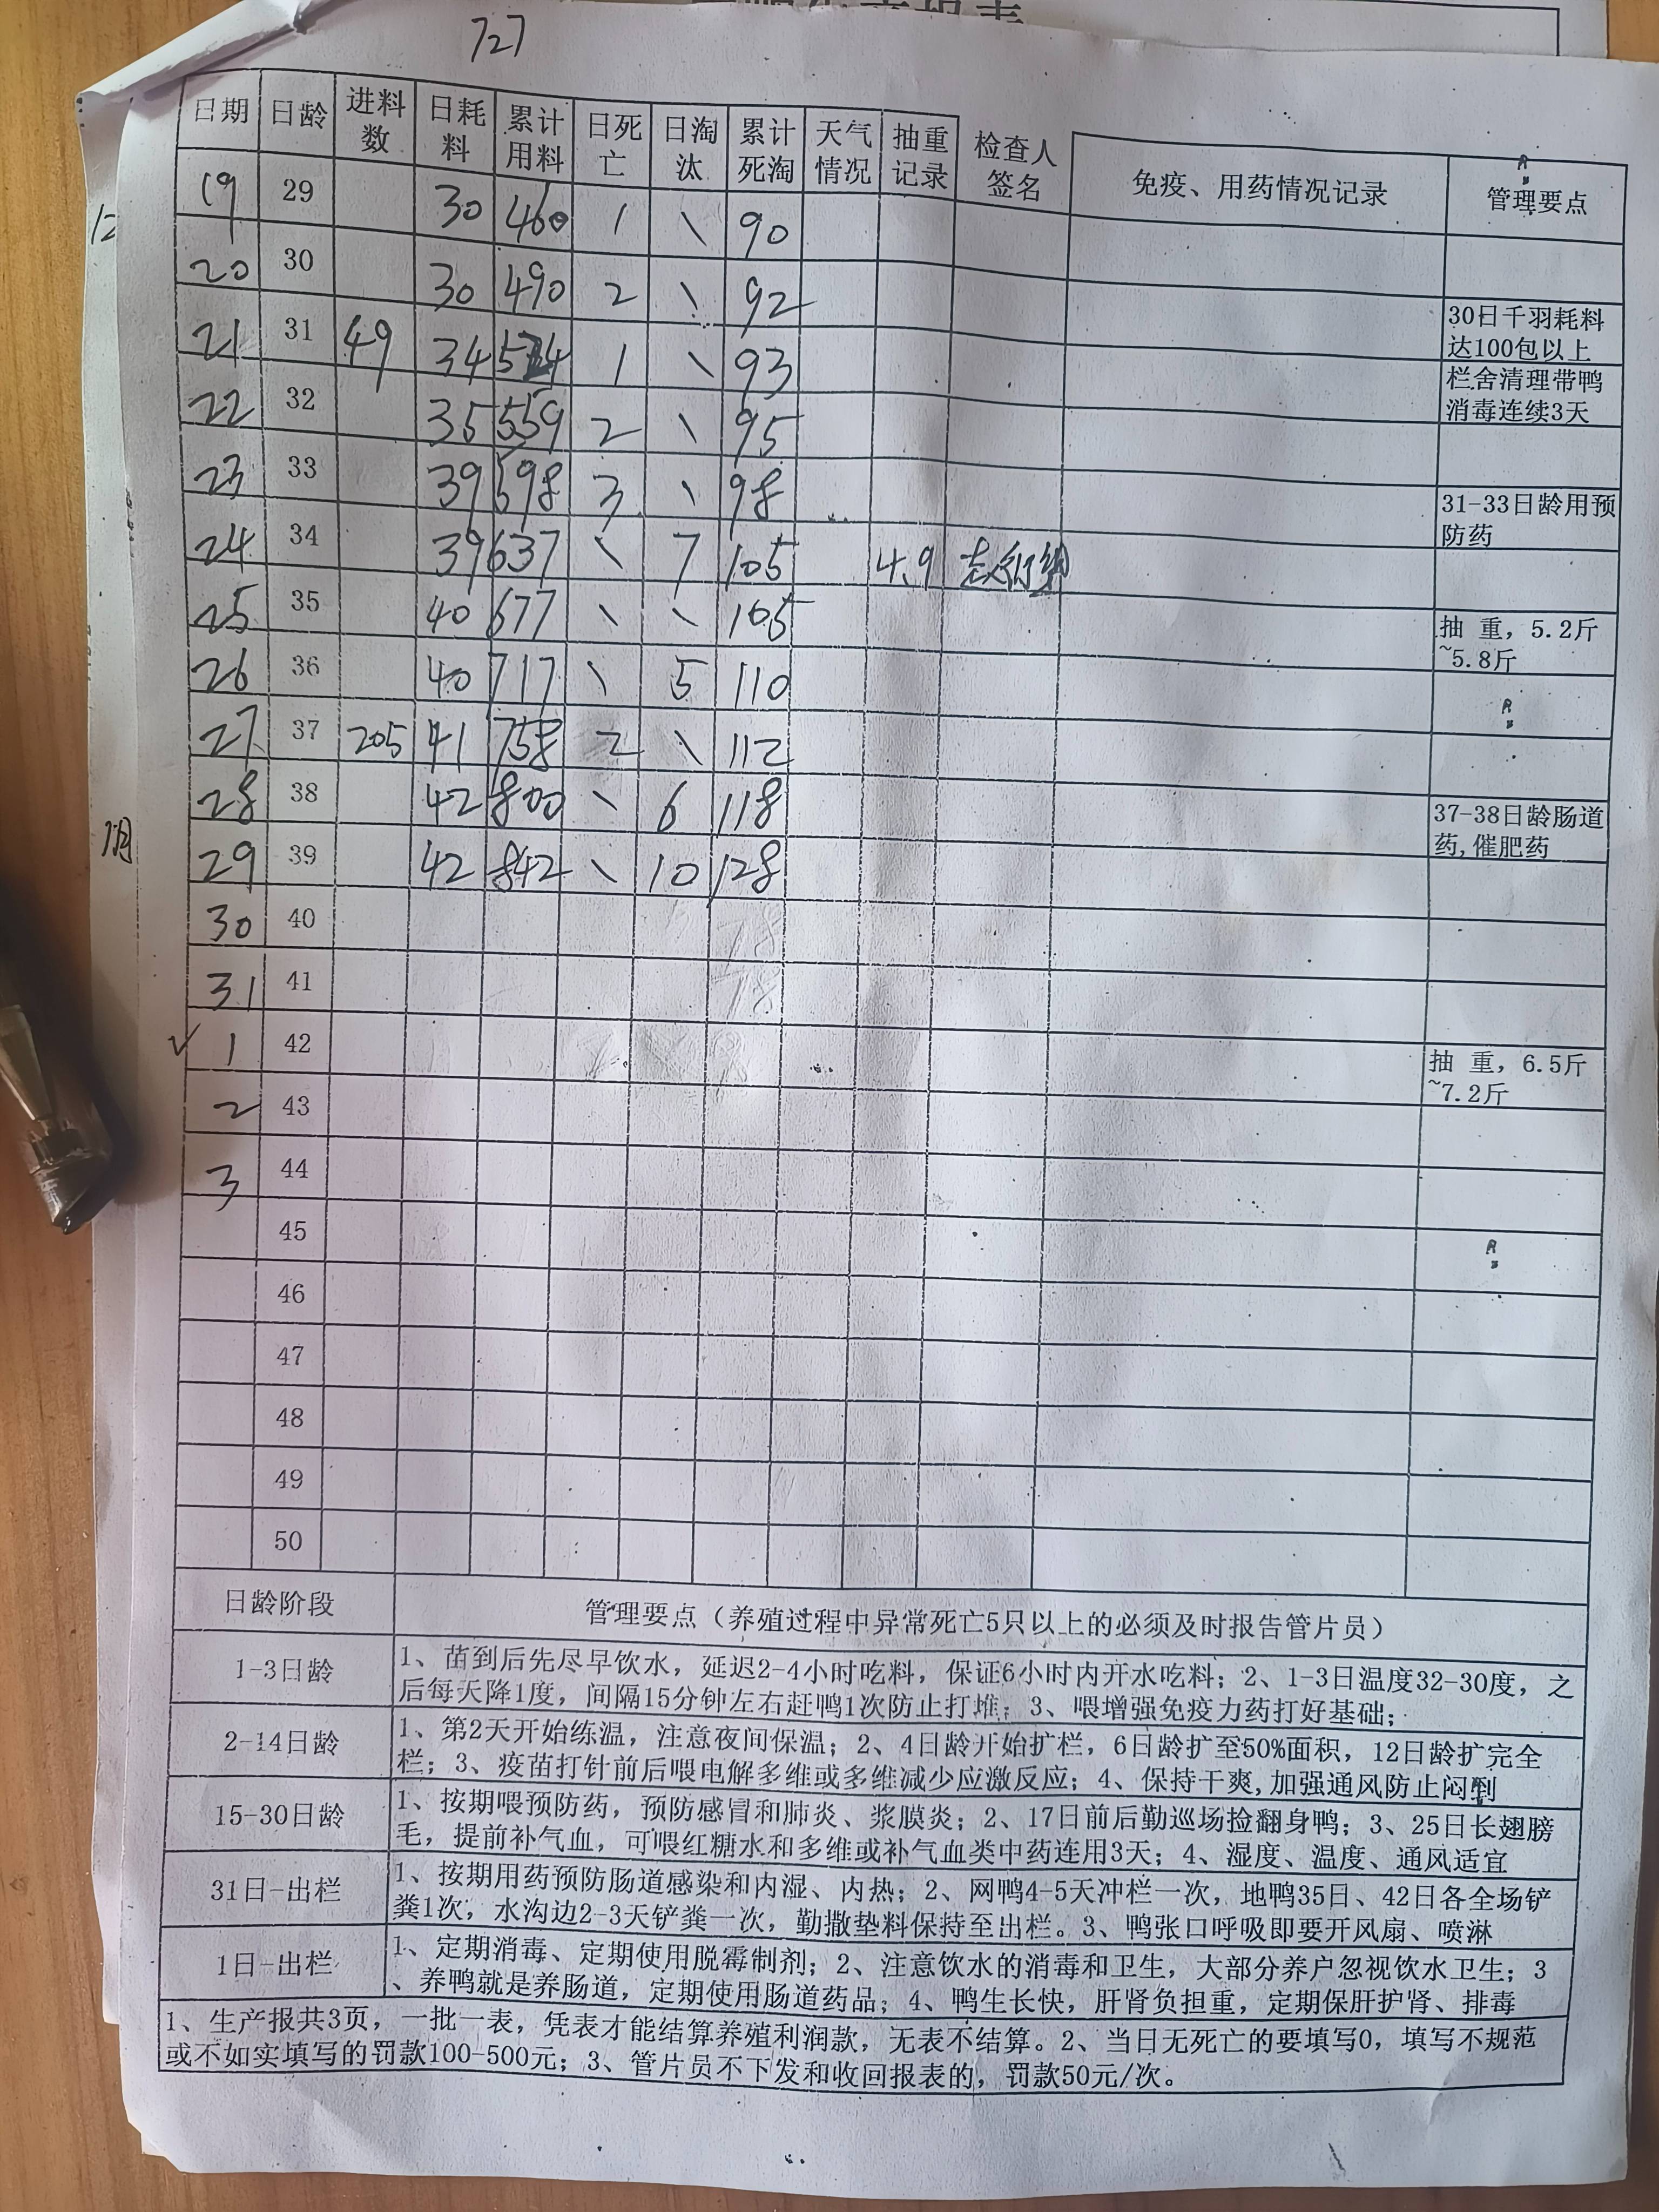 727
日期 日龄 进料数 日耗料 累计用料 日死亡 日淘汰 累计死淘 天气情况 抽重记录 检查人签名 免疫、用药情况记录 管理要点
19 29 30 460 1 \ 90
20 30 30 490 2 \ 92
30日千羽耗料
达100包以上
21 31 49 34 524 1 \ 93
栏舍清理带鸭
消毒连续3天
22 32 35 559 2 \ 95
23 33 39 598 3 \ 98
31-33日龄用预
防药
24 34 39 637 \ 7 105 4.9
25 35 40 677 \ \ 105
抽 重，5.2斤
~5.8斤
26 36 40 717 \ 5 110
27 37 205 41 758 2 \ 112
28 38 42 800 \ 6 118
37-38日龄肠道
药,催肥药
29 39 42 842 \ 10 128
30 40
31 41
√ 1 42
抽 重，6.5斤
~7.2斤
2 43
3 44
45
46
47
48
49
50
日龄阶段 管理要点（养殖过程中异常死亡5只以上的必须及时报告管片员）
1-3日龄
1、苗到后先尽早饮水，延迟2-4小时吃料，保证6小时内开水吃料；2、1-3日温度32-30度，之
后每天降1度，间隔15分钟左右赶鸭1次防止打堆；3、喂增强免疫力药打好基础；
2-14日龄
1、第2天开始练温，注意夜间保温；2、4日龄开始扩栏，6日龄扩至50%面积，12日龄扩完全
栏；3、疫苗打针前后喂电解多维或多维减少应激反应；4、保持干爽,加强通风防止闷
15-30日龄
1、按期喂预防药，预防感冒和肺炎、浆膜炎；2、17日前后勤巡场捡翻身鸭；3、25日长翅膀
毛，提前补气血，可喂红糖水和多维或补气血类中药连用3天；4、湿度、温度、通风适宜
31日-出栏
1、按期用药预防肠道感染和内湿、内热；2、网鸭4-5天冲栏一次，地鸭35日、42日各全场铲
粪1次，水沟边2-3天铲粪一次，勤撒垫料保持至出栏。3、鸭张口呼吸即要开风扇、喷淋
1日-出栏
1、定期消毒、定期使用脱霉制剂；2、注意饮水的消毒和卫生，大部分养户忽视饮水卫生；3
、养鸭就是养肠道，定期使用肠道药品；4、鸭生长快，肝肾负担重，定期保肝护肾、排毒
1、生产报共3页，一批一表，凭表才能结算养殖利润款，无表不结算。2、当日无死亡的要填写0，填写不规范
或不如实填写的罚款100-500元；3、管片员不下发和收回报表的，罚款50元/次。